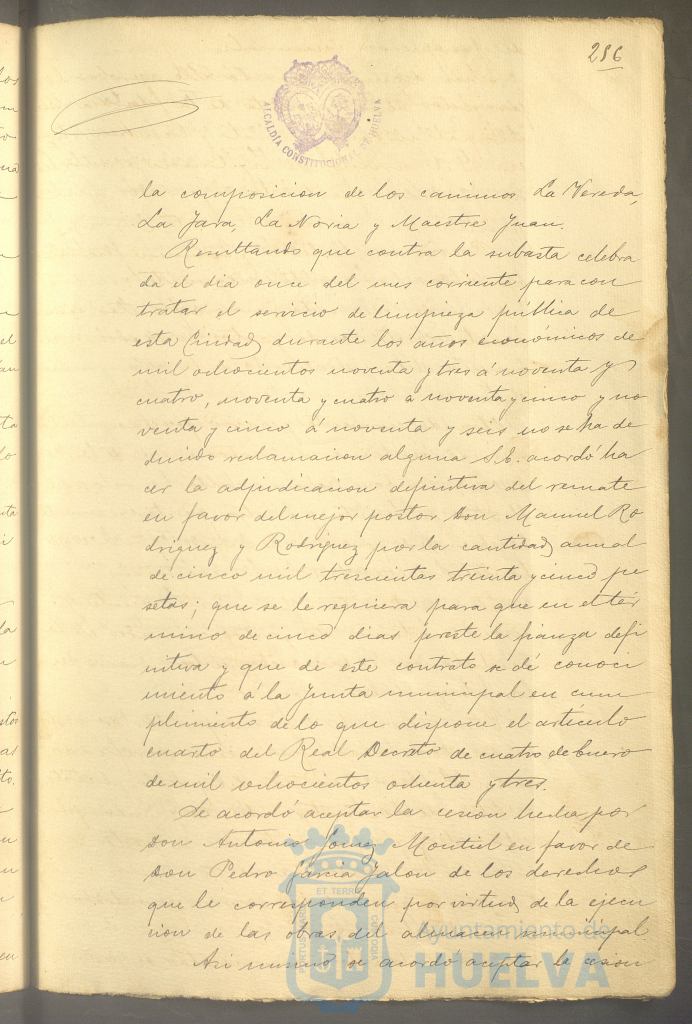 286
ALCALDÍA CONSTITUCIONAL DE HUELVA
la composicion de los caminos La Vereda,
La Jara, La Noria y Maestre Juan.
Resultando que contra la subasta celebra
da el dia once del mes corriente para con
tratar el servicio de limpieza pública de
esta Ciudad durante los años económicos de
mil ochocientos noventa y tres á noventa y
cuatro, noventa y cuatro a noventa y cinco y no
venta y cinco á noventa y seis no se ha de
ducido reclamacion alguna S.E. acordó ha
cer la adjudicacion definitiva del remate
en favor del mejor postor Don Manuel Ro
driguez y Rodriguez por la cantidad annal
de cinco mil trescientas treinta y cinco pe
setas; que se le requiera para que en el tér
mino de cinco dias preste la fianza defi
nitiva y que de este contrato se dé conoci
miento á la Junta municipal en cum
plimiento de lo que dispone el artículo
cuarto del Real Decreto de cuatro de Enero
de mil ochocientos ochenta y tres.
Se acordó aceptar la cesion hecha por
Don Antonio Gomez Montiel en favor de
Don Pedro Garcia Jalon de los derechos
que le corresponden por virtud de la ejecu
cion de las obras del almacen municipal
Asi mismo se acordó aceptar la cesion
Ayuntamiento de
HUELVA